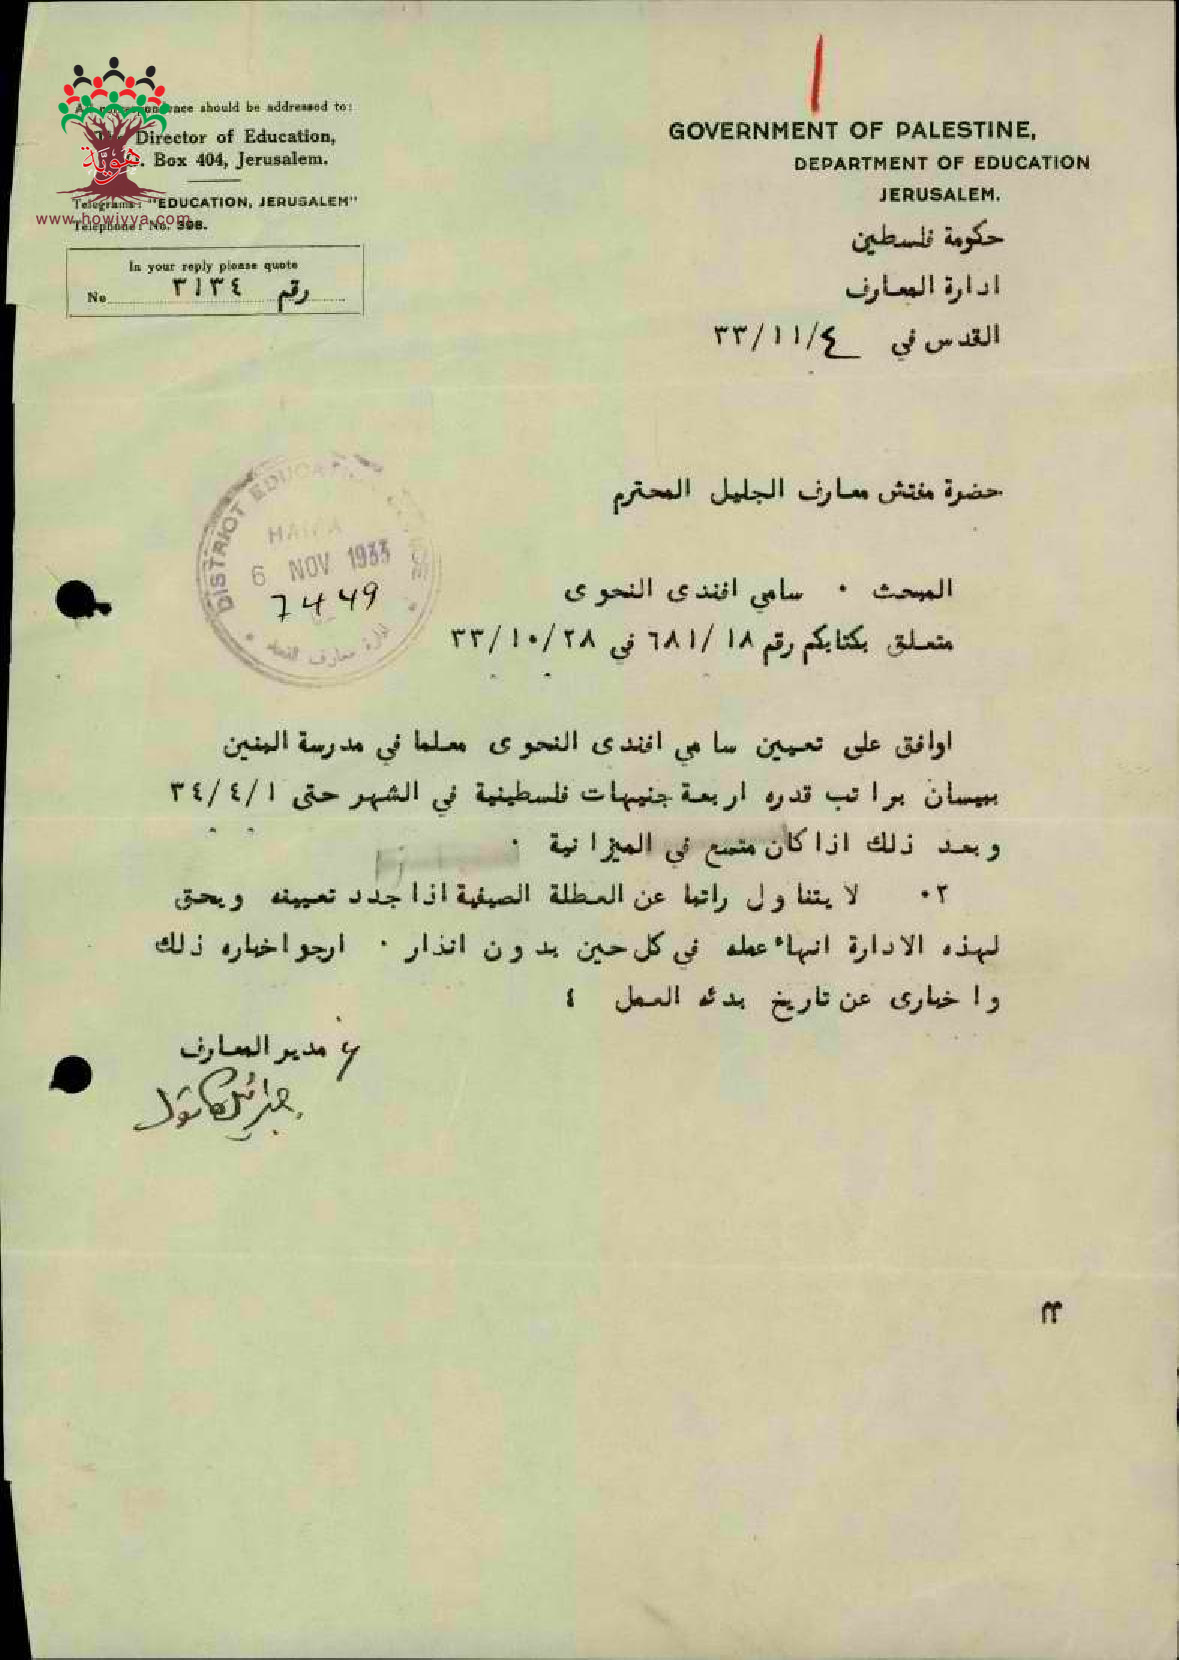 All correspondence should be addressed to:
The Director of Education,
P.O. Box 404, Jerusalem.
Telegrams: "EDUCATION, JERUSALEM"
Telephone: No. 398.
In your reply please quote
No رقم ٣١٣٤
هوية
www.howiyya.com
GOVERNMENT OF PALESTINE,
DEPARTMENT OF EDUCATION
JERUSALEM.
حكومة فلسطين
ادارة المعارف
القدس في ٣٣/١١/٤
حضرة مفتش معارف الجليل المحترم
DISTRICT EDUCATION OFFICE
HAIFA
6 NOV 1933
7449
المبحث ٠ سامي افندى النحوى
متعلق بكتابكم رقم ١٨/ ٦٨١ في ٣٣/١٠/٢٨
اوافق على تعيين سامي افندى النحوى معلما في مدرسة البنين
ببيسان براتب قدره اربعة جنيهات فلسطينية في الشهر حتى ٣٤/٤/١
وبعد ذلك اذا كان متسع في الميزانية ٠
٢٠ لا يتناول راتبا عن العطلة الصيفية اذا جدد تعيينه ويحق
لهذه الادارة انهاء عمله في كل حين بدون انذار ٠ ارجو اخباره ذلك
واخبارى عن تاريخ بدئه العمل ٤
مدير المعارف
جبرائيل كاتول